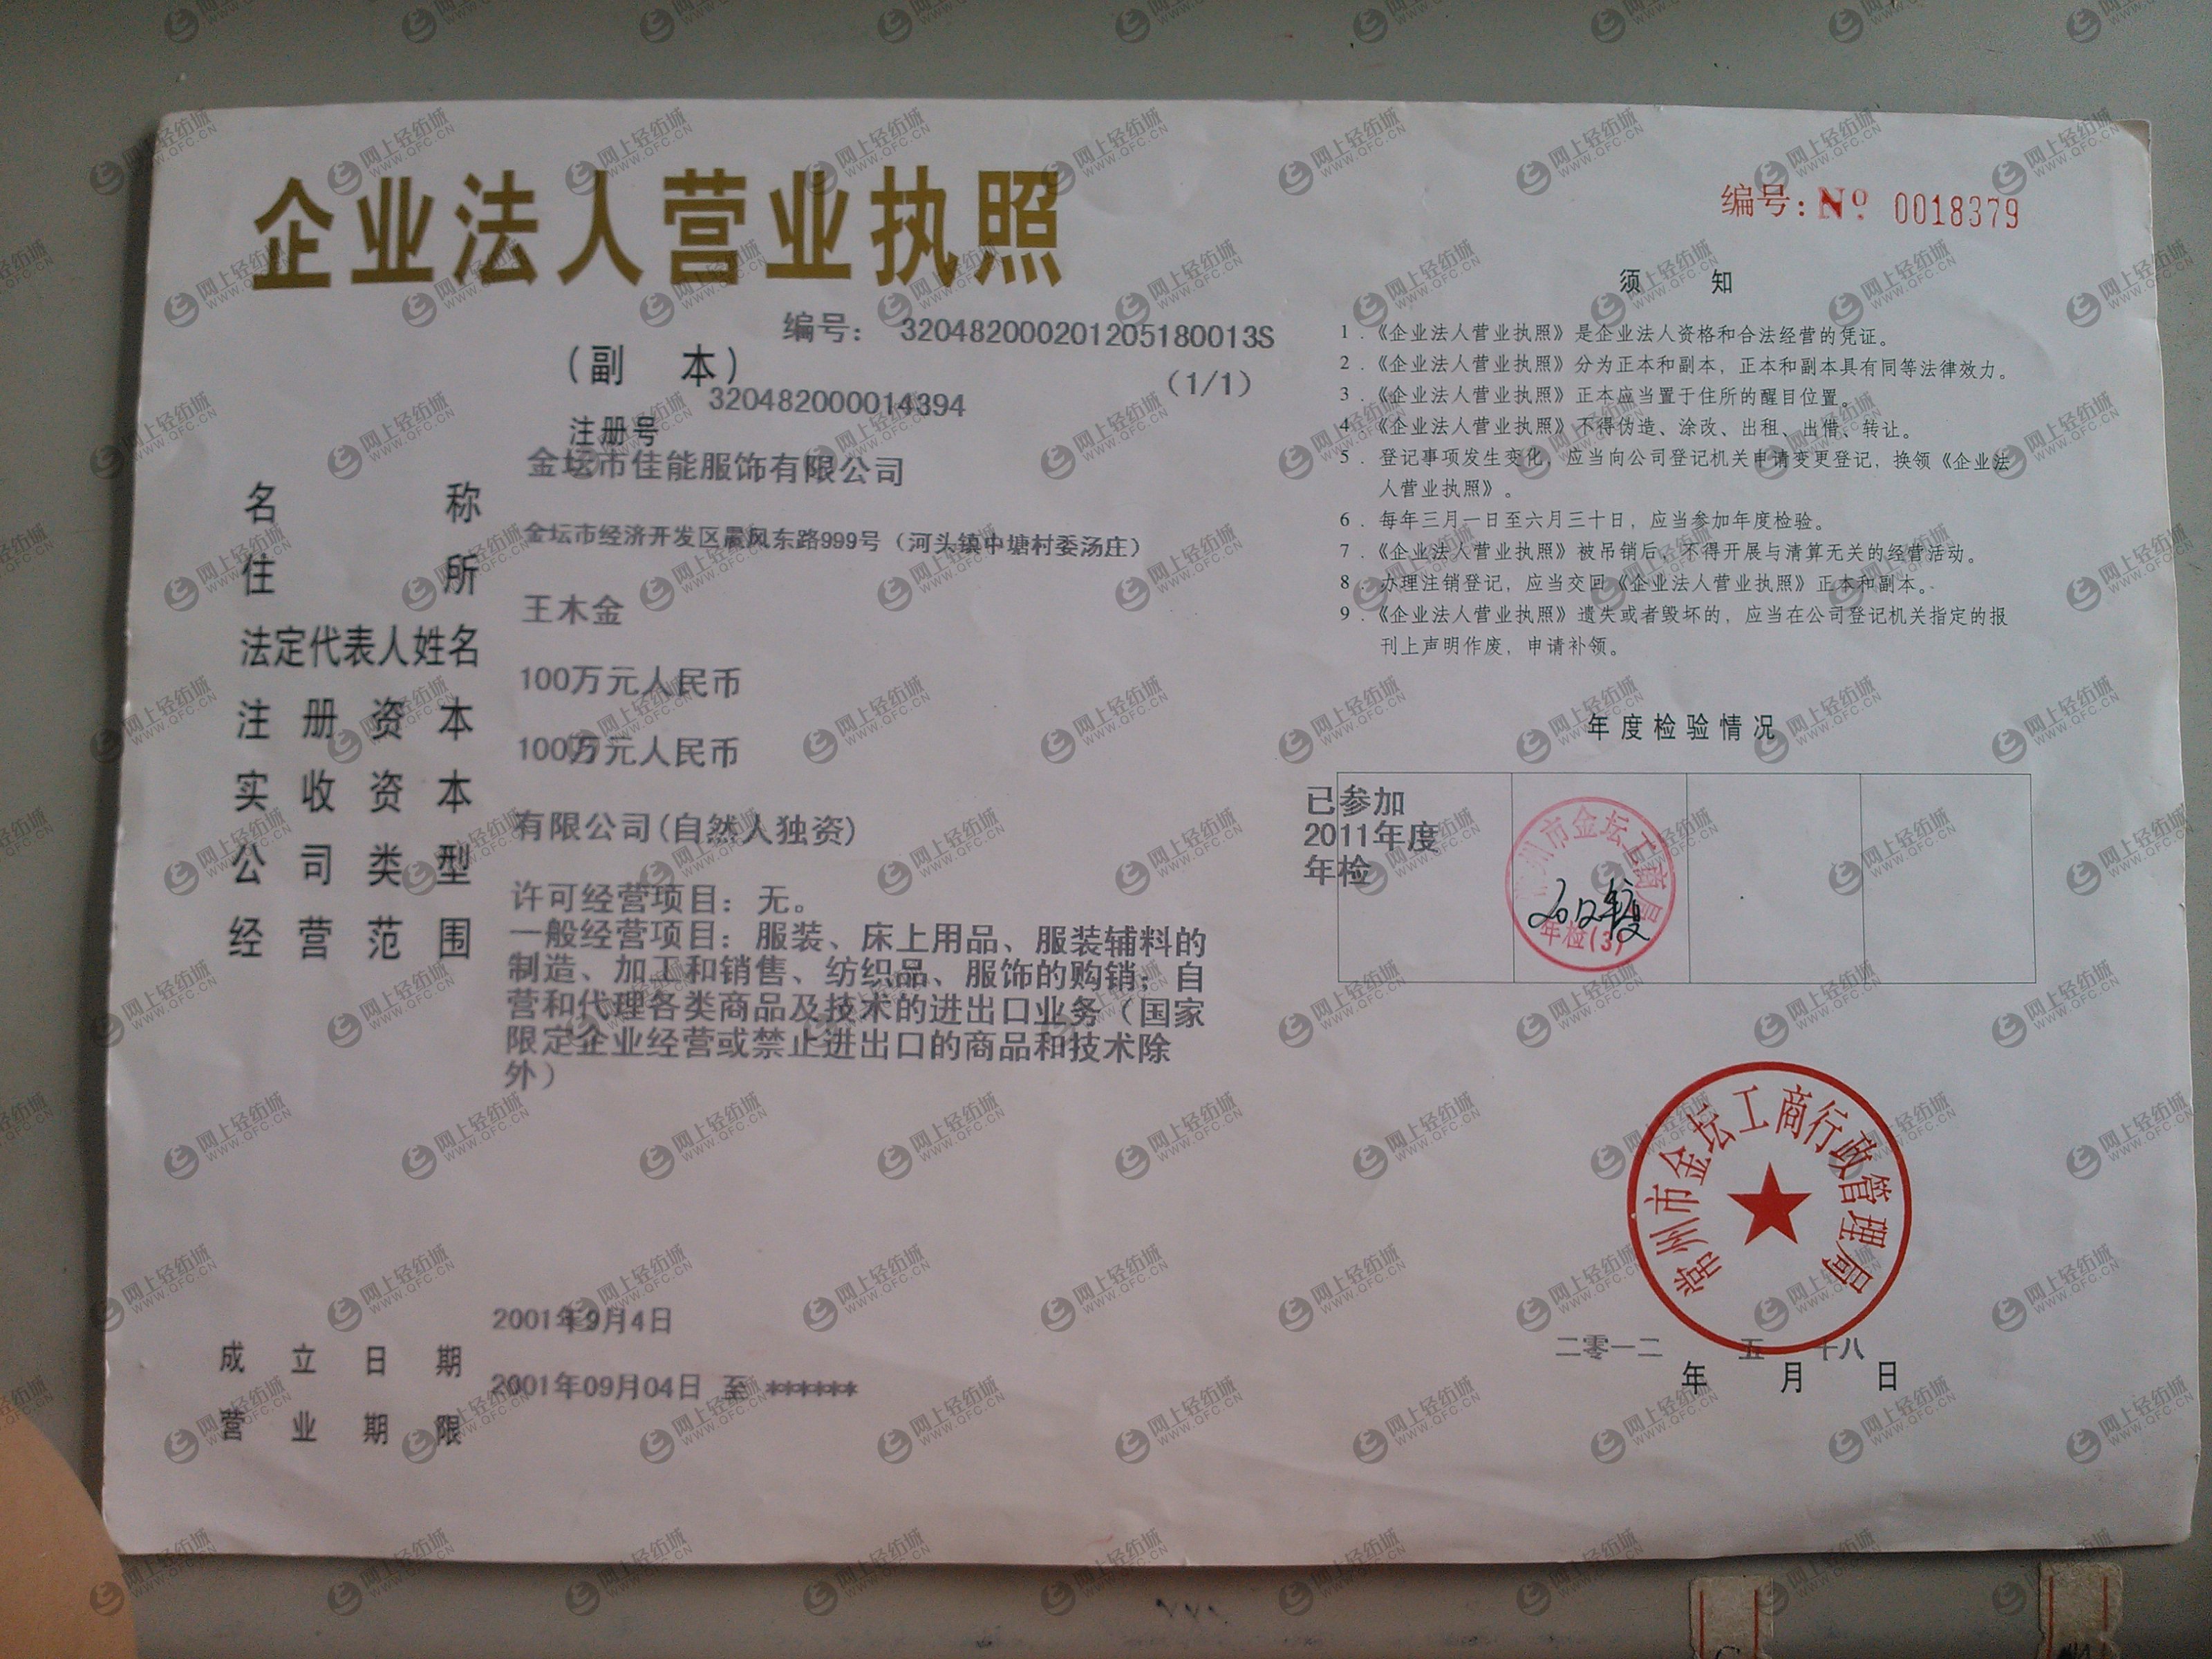 企业法人营业执照
编号： 320482000201205180013S
（副 本） （1/1）
320482000014394
注册号
金坛市佳能服饰有限公司
名 称
金坛市经济开发区晨风东路999号（河头镇中塘村委汤庄）
住 所
王木金
法定代表人姓名
100万元人民币
注 册 资 本
100万元人民币
实 收 资 本
有限公司(自然人独资)
公 司 类 型
许可经营项目：无。
经 营 范 围
一般经营项目：服装、床上用品、服装辅料的
制造、加工和销售、纺织品、服饰的购销；自
营和代理各类商品及技术的进出口业务（国家
限定企业经营或禁止进出口的商品和技术除
外）
2001年9月4日
成 立 日 期
2001年09月04日 至 ******
营 业 期 限
编号：No 0018379
须 知
1．《企业法人营业执照》是企业法人资格和合法经营的凭证。
2．《企业法人营业执照》分为正本和副本，正本和副本具有同等法律效力。
3．《企业法人营业执照》正本应当置于住所的醒目位置。
4．《企业法人营业执照》不得伪造、涂改、出租、出借、转让。
5．登记事项发生变化，应当向公司登记机关申请变更登记，换领《企业法
人营业执照》。
6．每年三月一日至六月三十日，应当参加年度检验。
7．《企业法人营业执照》被吊销后，不得开展与清算无关的经营活动。
8．办理注销登记，应当交回《企业法人营业执照》正本和副本。
9．《企业法人营业执照》遗失或者毁坏的，应当在公司登记机关指定的报
刊上声明作废，申请补领。
年度检验情况
已参加
2011年度
年检
常州市金坛工商局
2012年度
年检(3)
常州市金坛工商行政管理局
二零一二 五 十八
年 月 日
网上轻纺城
WWW.QFC.CN